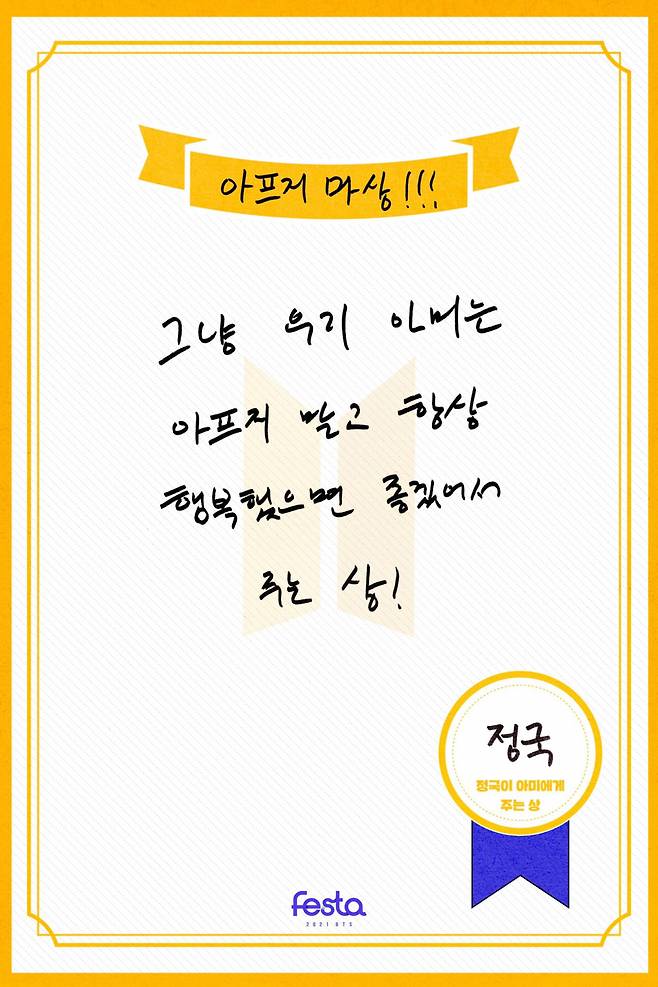 아프지 마상!!!
그냥 우리 아미는
아프지 말고 항상
행복했으면 좋겠어서
주는 상!
정국
정국이 아미에게
주는 상
festa
2021 BTS